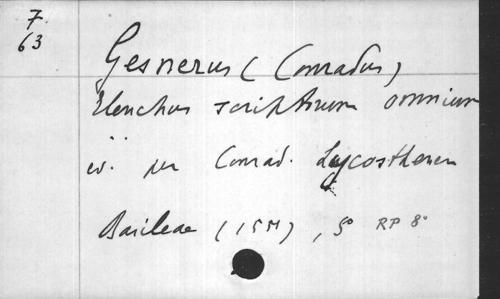 7.
63
Gesnerus (Conradus)
Elenchus scriptorum omnium
per Conrad. Lycosthenem
Basileae (1551), RP 8°